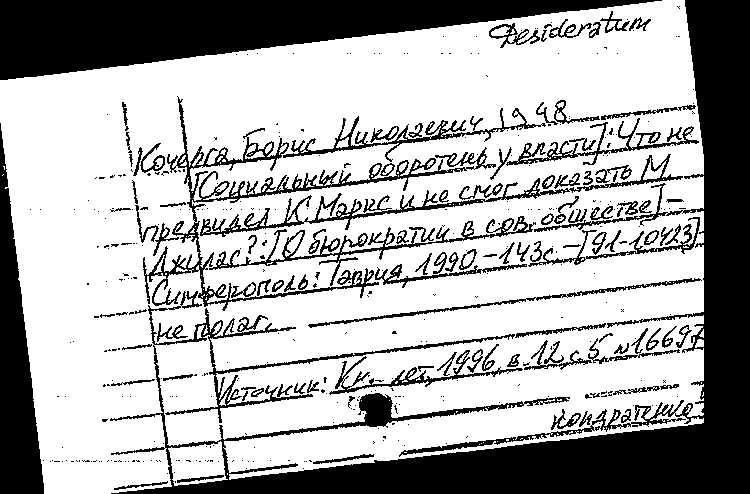 Desideratum
Кочерга, Борис Николаевич, 1948
[Социальный оборотень у власти]: Что не
предвидел К. Маркс и не смог доказать М
Джилас?: [О бюрократии в сов. обществе] –
Симферополь: Таврия, 1990. – 143с. – [91-10423]
не полаг.
Источник: Кн. лет, 1996, в. 12, с 5, №16697
кондратенко